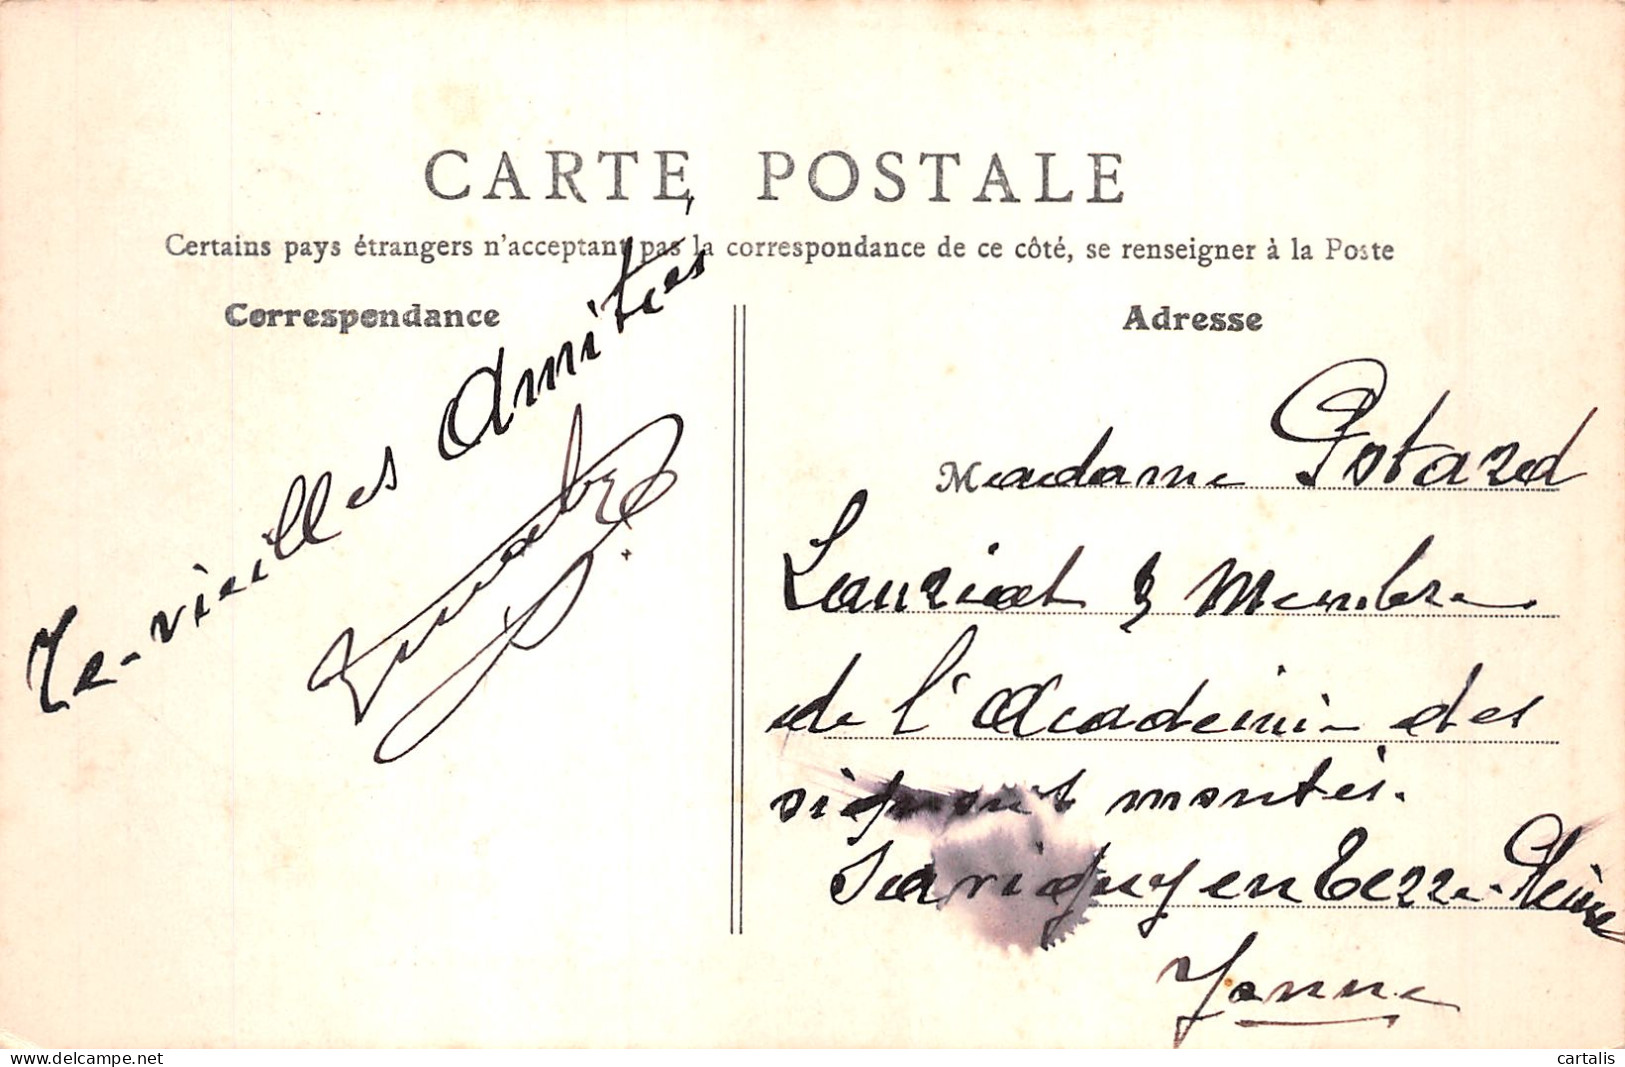 CARTE POSTALE
Certains pays étrangers n'acceptant pas la correspondance de ce côté, se renseigner à la Poste
Correspondance
Adresse
vieilles Amitiés
Madame Potard
Lauriat & Membre
de l'Academie des
montés.
Savigny en Terre-Pleine
Yonne
cartalis